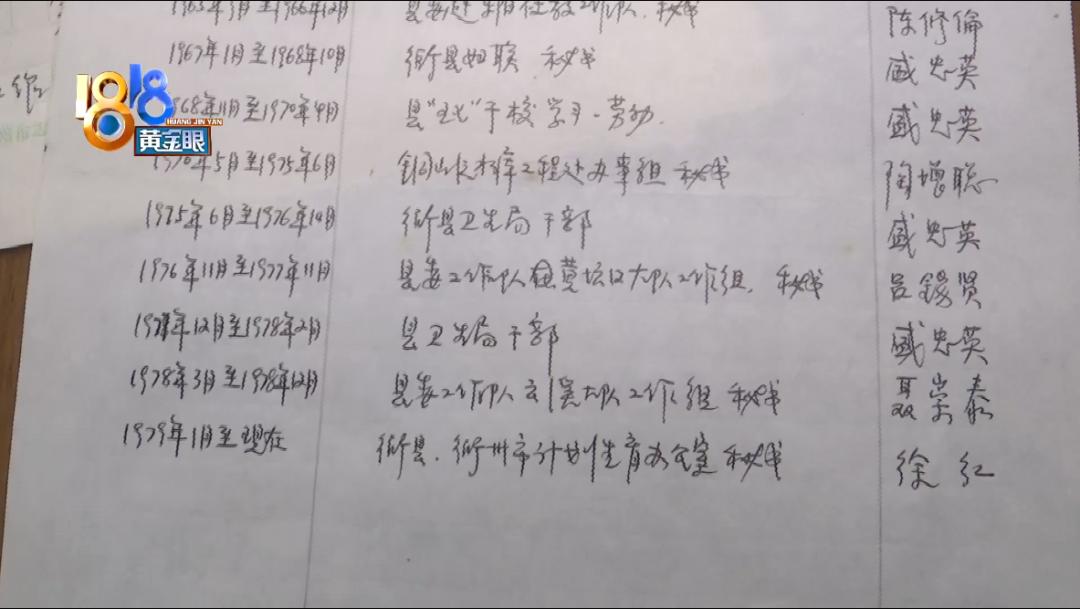 1965年9月至1966年12月 县委赴 社教工作队.秘书 陈修倫
1967年1月至1968年10月 衢县妇联.秘书 盛忠英
1818
HUANG JIN YAN
黄金眼
1968年11月至1970年4月 县“五七”干校学习·劳动. 盛忠英
1970年5月至1975年6月 铜山 水库工程处办事组 秘书 陶增聪
1975年6月至1976年10月 衢县卫生局干部 盛忠英
1976年11月至1977年11月 县委工作队 大队工作组.秘书 吕錫贤
1977年12月至1978年2月 县卫生局干部 盛忠英
1978年3月至1978年12月 县委工作队 大队工作组 秘书 聂崇泰
1979年1月至现在 衢县.衢州市计划生育办公室 秘书 徐红